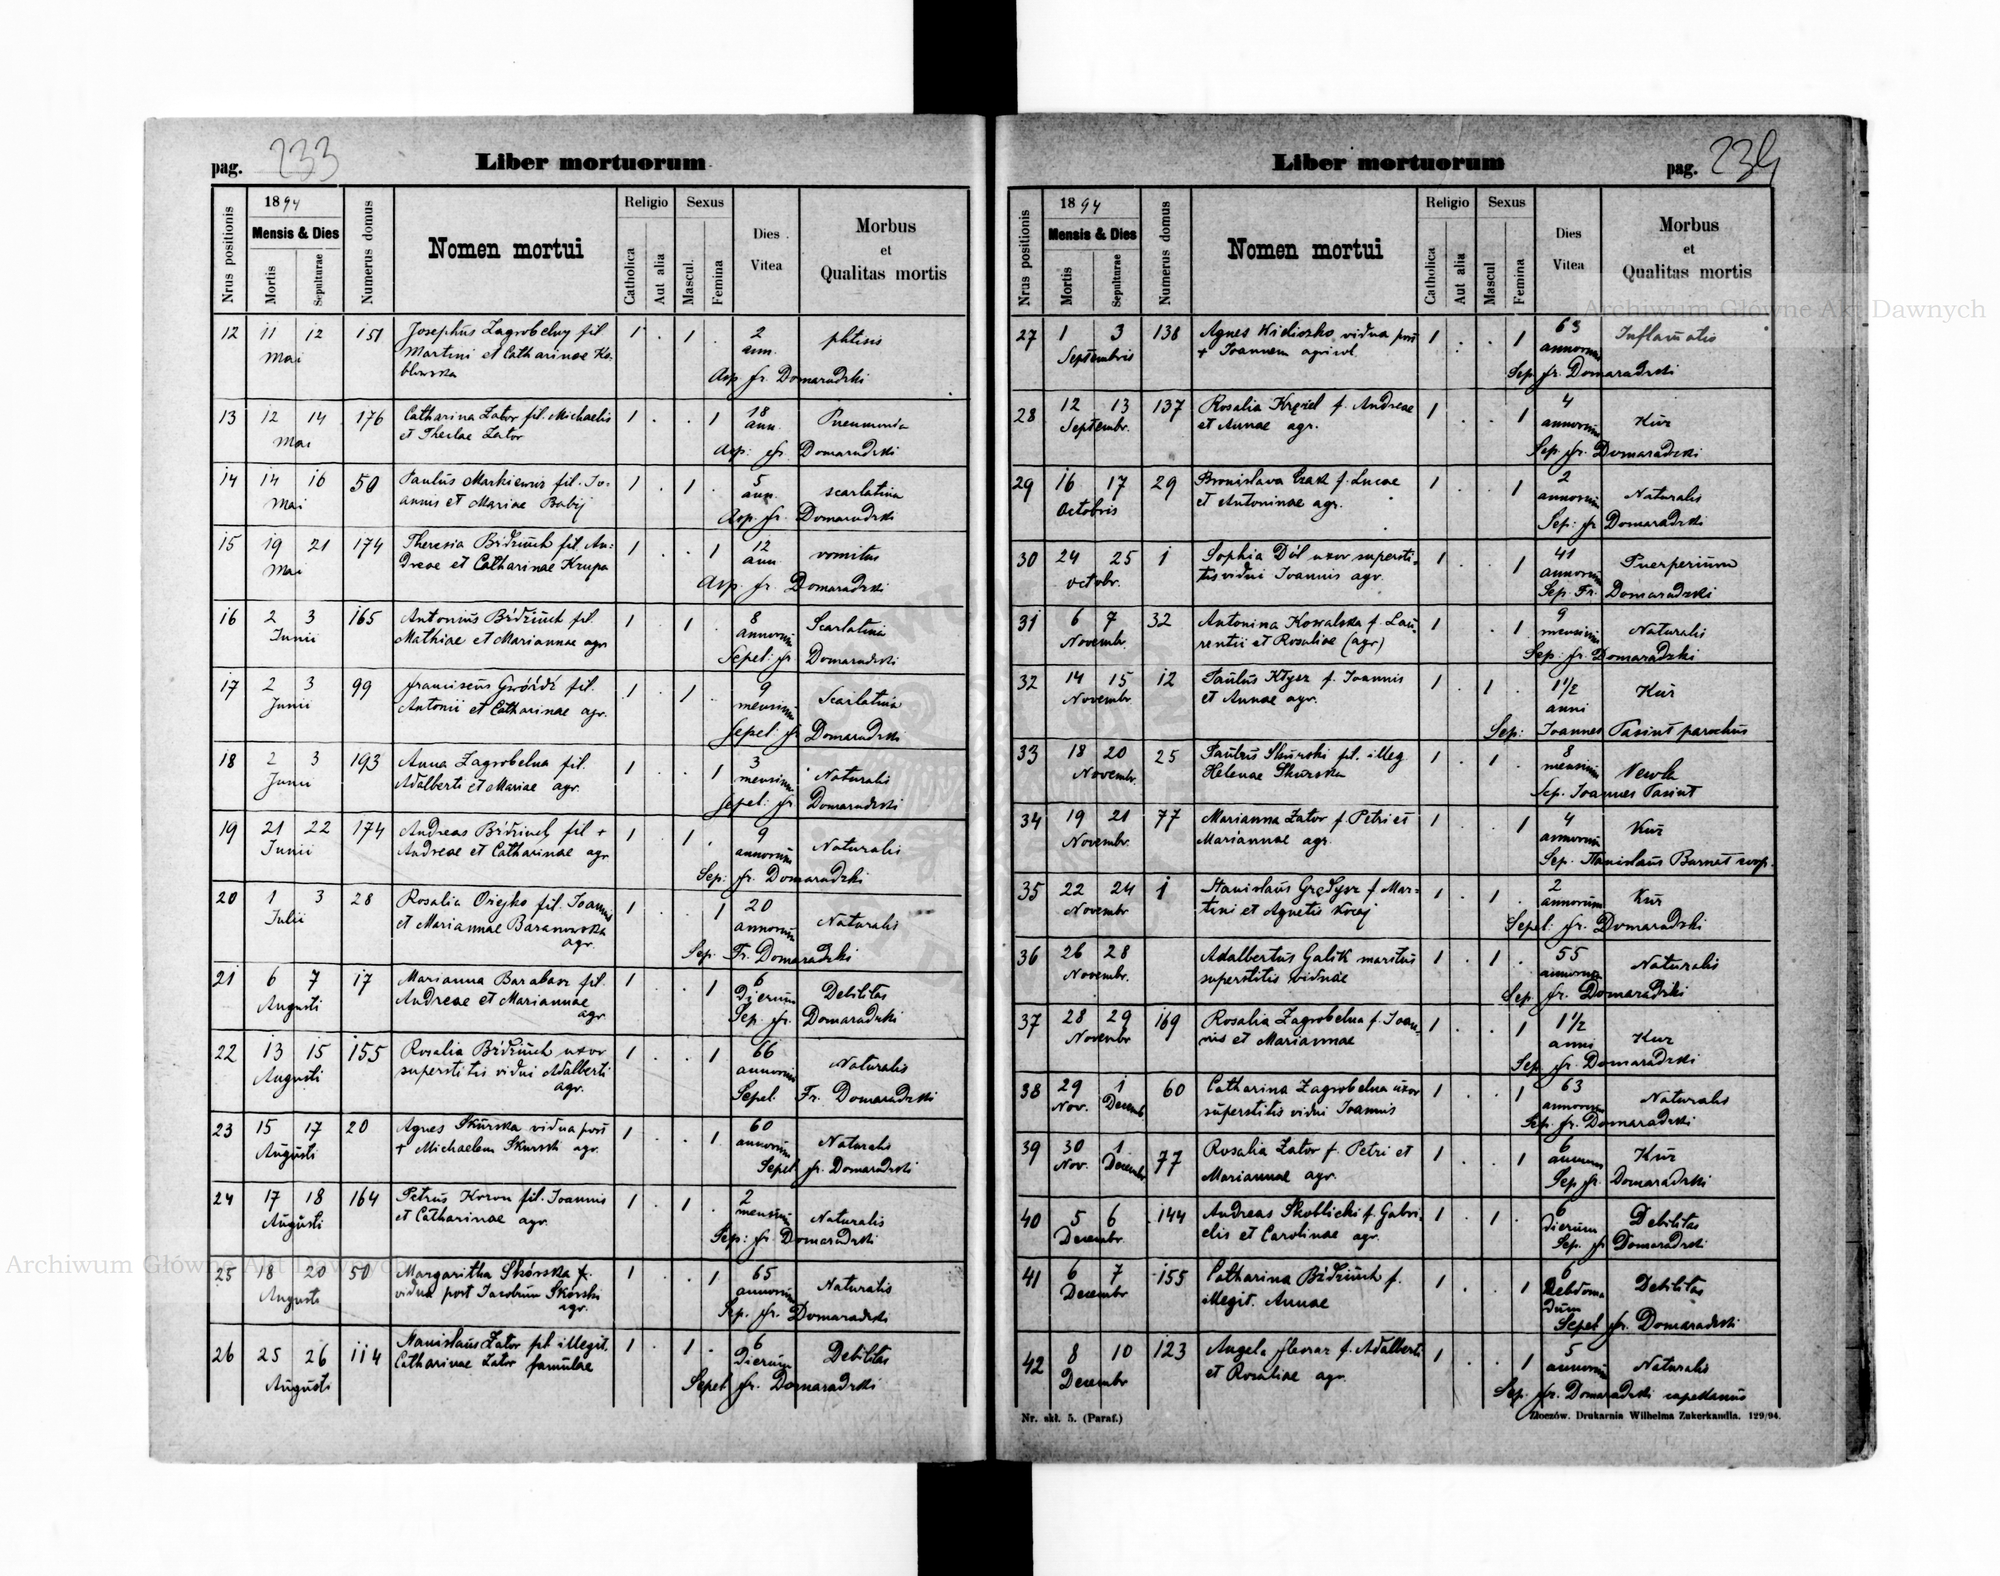 pag. 233
Liber mortuorum
Nrus positionis
1894
Mensis & Dies
Mortis
Sepulturae
Numerus domus
Nomen mortui
Religio
Catholica
Aut alia
Sexus
Mascul.
Femina
Dies
Vitea
Morbus
et
Qualitas mortis
12 11 12 151 Josephus Zagrobelny fil. 1 . 1 . 2 phtisis
Mai Martini et Catharinae Ko- ann.
błowska Asp. fr. Domaradzki
13 12 14 176 Catharina Zator fil. Michaelis 1 . . 1 18 Pneumonia
Mai et Theclae Zator ann.
Asp: fr. Domaradzki
14 14 16 50 Paulus Markiewicz fil. Jo- 1 . 1 . 5 scarlatina
Mai annis et Mariae Babij ann.
Asp. fr. Domaradzki
15 19 21 174 Theresia Bidziuch fil. An- 1 . . 1 12 vomitus
Mai dreae et Catharinae Krupa ann.
Asp. fr. Domaradzki
16 2 3 165 Antonius Bidziuch fil. 1 . 1 . 8 Scarlatina
Junii Mathiae et Mariannae agr. annorum
Sepel: fr. Domaradzki
17 2 3 99 Franciscus Gwóźdź fil. 1 . 1 . 9 Scarlatina
Junii Antonii et Catharinae agr. mensium
Sepel: fr. Domaradzki
18 2 3 193 Anna Zagrobelna fil. 1 . . 1 3 Naturalis
Junii Adalberti et Mariae agr. mensium
Sepel: fr. Domaradzki
19 21 22 174 Andreas Bidziuch fil + 1 . 1 . 9 Naturalis
Junii Andreae et Catharinae agr. annorum
Sep: fr. Domaradzki
20 1 3 28 Rosalia fil. Joannis 1 . . 1 20 Naturalis
Julii et Mariannae Baranowska annorum
agr. Sep. Fr. Domaradzki
21 6 7 17 Marianna Barabasz fil. 1 . . 1 6 Debilitas
Augusti Andreae et Mariannae dierum
agr. Sep. fr. Domaradzki
22 13 15 155 Rosalia Bidziuch uxor 1 . . 1 66 Naturalis
Augusti superstitis vidui Adalberti annorum
agr. Sepel. Fr. Domaradzki
23 15 17 20 Agnes Skurska vidua post 1 . . 1 60 Naturalis
Augusti + Michaelem Skurski agr. annorum
Sepel fr. Domaradzki
24 17 18 164 Petrus Koron fil. Joannis 1 . 1 . 2 Naturalis
Augusti et Catharinae agr. mensium
Sep: fr. Domaradzki
25 18 20 50 Margaritha Skórska f. 1 . . 1 65 Naturalis
Augusti vidua post Jacobum Skórski annorum
agr. Sep. fr. Domaradzki
26 25 26 114 Stanislaus Zator fil illegit. 1 . 1 . 6 Debilitas
Augusti Catharinae Zator famulae dierum
Sepel fr. Domaradzki
Liber mortuorum
pag. 234
Nrus positionis
1894
Mensis & Dies
Mortis
Sepulturae
Numerus domus
Nomen mortui
Religio
Catholica
Aut alia
Sexus
Mascul
Femina
Dies
Vitea
Morbus
et
Qualitas mortis
27 1 3 138 Agnes vidua post 1 . . 1 63 Inflamatio
Septembris + Joannem agricol. annorum
Sep fr. Domaradzki
28 12 13 137 Rosalia Kręziel f. Andreae 1 . . 1 4 Kur
Septembr. et Annae agr. annorum
Sep. fr. Domaradzki
29 16 17 29 Bronislava Czak f. Lucae 1 . . 1 2 Naturalis
Octobris et Antoninae agr. annorum
Sep: fr Domaradzki
30 24 25 1 Sophia Dól uxor supersti- 1 . . 1 41 Puerperium
octobr. tis vidui Joannis agr. annorum
Sep. Fr. Domaradzki
31 6 7 32 Antonina Kowalska f. Lau- 1 . . 1 9 Naturalis
Novembr. rentii et Rosaliae (agr) mensium
Sep: fr. Domaradzki
32 14 15 12 Paulus Kłysz f. Joannis 1 . 1 . 1 1/2 Kur
Novembr. et Annae agr. anni
Sep: Joannes Pasiut parochus
33 18 20 25 Paulus Skurski fil. illeg 1 . 1 . 8
Novembr. Helenae Skurska mensium
Sep. Joannes Pasiut
34 19 21 77 Marianna Zator f. Petri et 1 . . 1 4 Kur
Novembr. Mariannae agr. annorum
Sep. Stanislaus Barnat coop.
35 22 24 1 Stanislaus Grędysz f. Mar- 1 . 1 . 2 Kur
Novembr tini et Agnetis Kocaj annorum
Sepel: fr. Domaradzki
36 26 28 Adalbertus Galik maritus 1 . 1 . 55 Naturalis
Novembr. superstitis viduae annorum
Sep. fr. Domaradzki
37 28 29 169 Rosalia Zagrobelna f. Joan- 1 . . 1 1 1/2 Kur
Novembr nis et Mariannae anni
Sep. fr. Domaradzki
38 29 1 60 Catharina Zagrobelna uxor 1 . . 1 63 Naturalis
Nov. Decemb superstitis vidui Joannis annorum
Sep. fr. Domaradzki
39 30 1 77 Rosalia Zator f. Petri et 1 . . 1 6 Kur
Nov. Decembr Mariannae agr. annorum
Sep fr. Domaradzki
40 5 6 144 Andreas Skoblicki f. Gabri- 1 . 1 . 6 Debilitas
Decembr. elis et Carolinae agr. dierum
Sep. fr Domaradzki
41 6 7 155 Catharina Bidziuch f. 1 . . 1 6 Debilitas
Decembr illegit. Annae hebdoma
dum
Sepel fr. Domaradzki
42 8 10 123 Angela f. Adalberti 1 . . 1 5 Naturalis
Decembr et Rosaliae agr. annorum
Sep. fr. Domaradzki capellanus
Nr. skł. 5. (Paraf.)
Złoczów. Drukarnia Wilhelma Zukerkandla. 129/94.
Archiwum Główne Akt Dawnych
Archiwum Główne Akt Dawnych